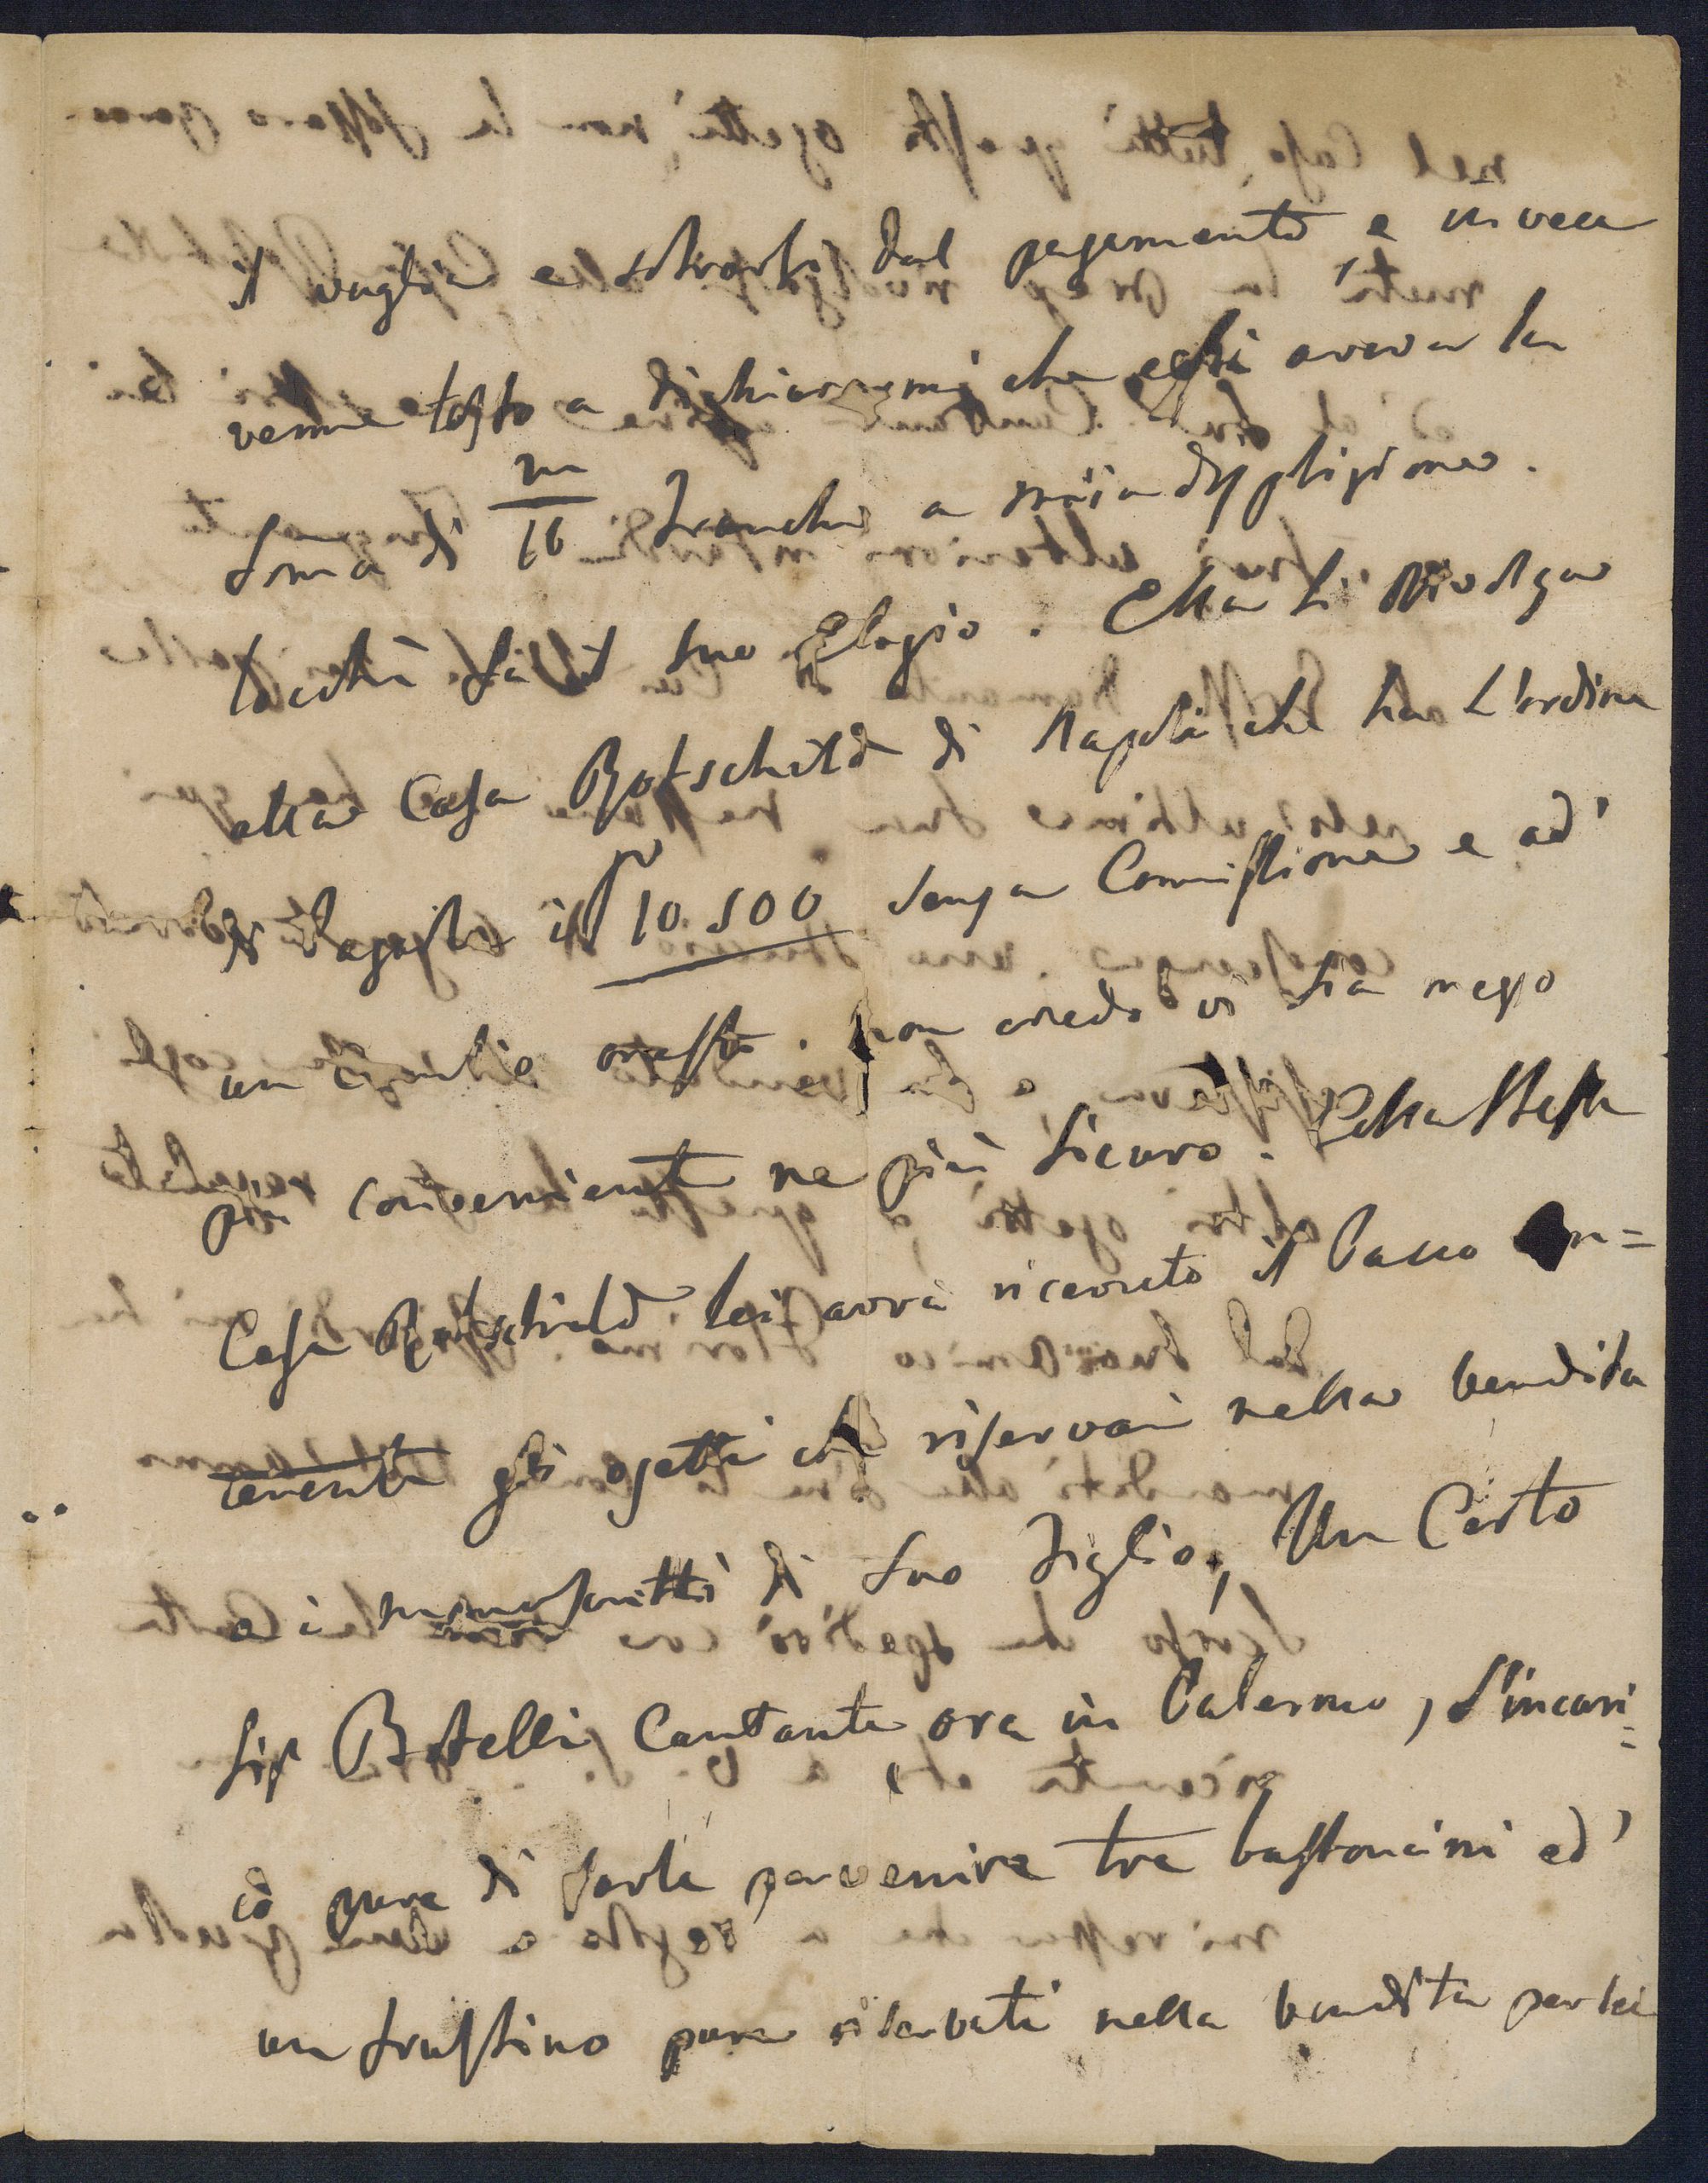 il vaglia e sotrarsi dal pagamento, e invece
venne tosto a dichiararmi che egli aveva la
soma di m/16 franchi a mia disposizione.
tachè fa il suo Elogio. Ella si rivolga
alla Casa Rotschild di Napoli che ha l'ordine
di pagarle 10.500 senza Comissione e ad'
un cambio onesto. non credo vi sia mezzo
più conveniente ne più sicuro. Dalla stessa
Casa Rotschild lei avrà ricevuto il Pacco con=
tenente gli ogetti che riservai nella vendita
e i manoscritti di suo figlio, Un Certo
Sigr Botelli Cantante ora in Palermo, s'incari=
cò pure di farle pervenire tre bastoncini ed'
un frustino pure riservati nella vendita per lei